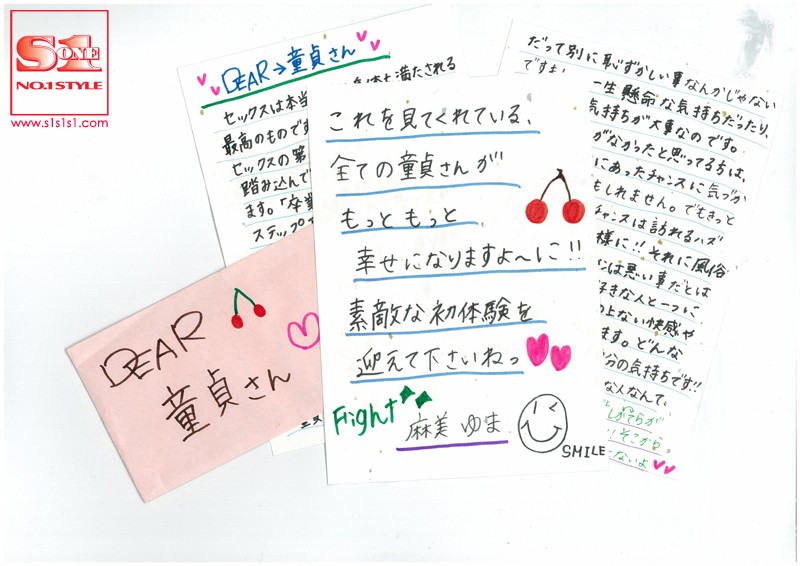 S1
ONE
NO.1 STYLE
www.s1s1s1.com
DEAR→童貞さん
セックスは本当
最高のものです
セックスの第
踏み込んで
ます。「卒業
ステップ
満たされる
DEAR
童貞さん
これを見てくれている、
全ての童貞さんが
もっともっと
幸せになりますよ〜に!!
素敵な初体験を
迎えて下さいねっ
Fight
麻美ゆま
SMILE
だって別に恥ずかしい事なんかじゃない
一生懸命な気持ちだったり、
気持ちが大事なのです。
がなかったと思ってる方は、
にあったチャンスに気づか
もしれません。でもきっと
チャンスは訪れるハズ
様に!!それに風俗
は悪い事だとは
好きな人と一つに
ない快感や
ます。どんな
分の気持ちです!!
な人なんて、
そこから
ないよ